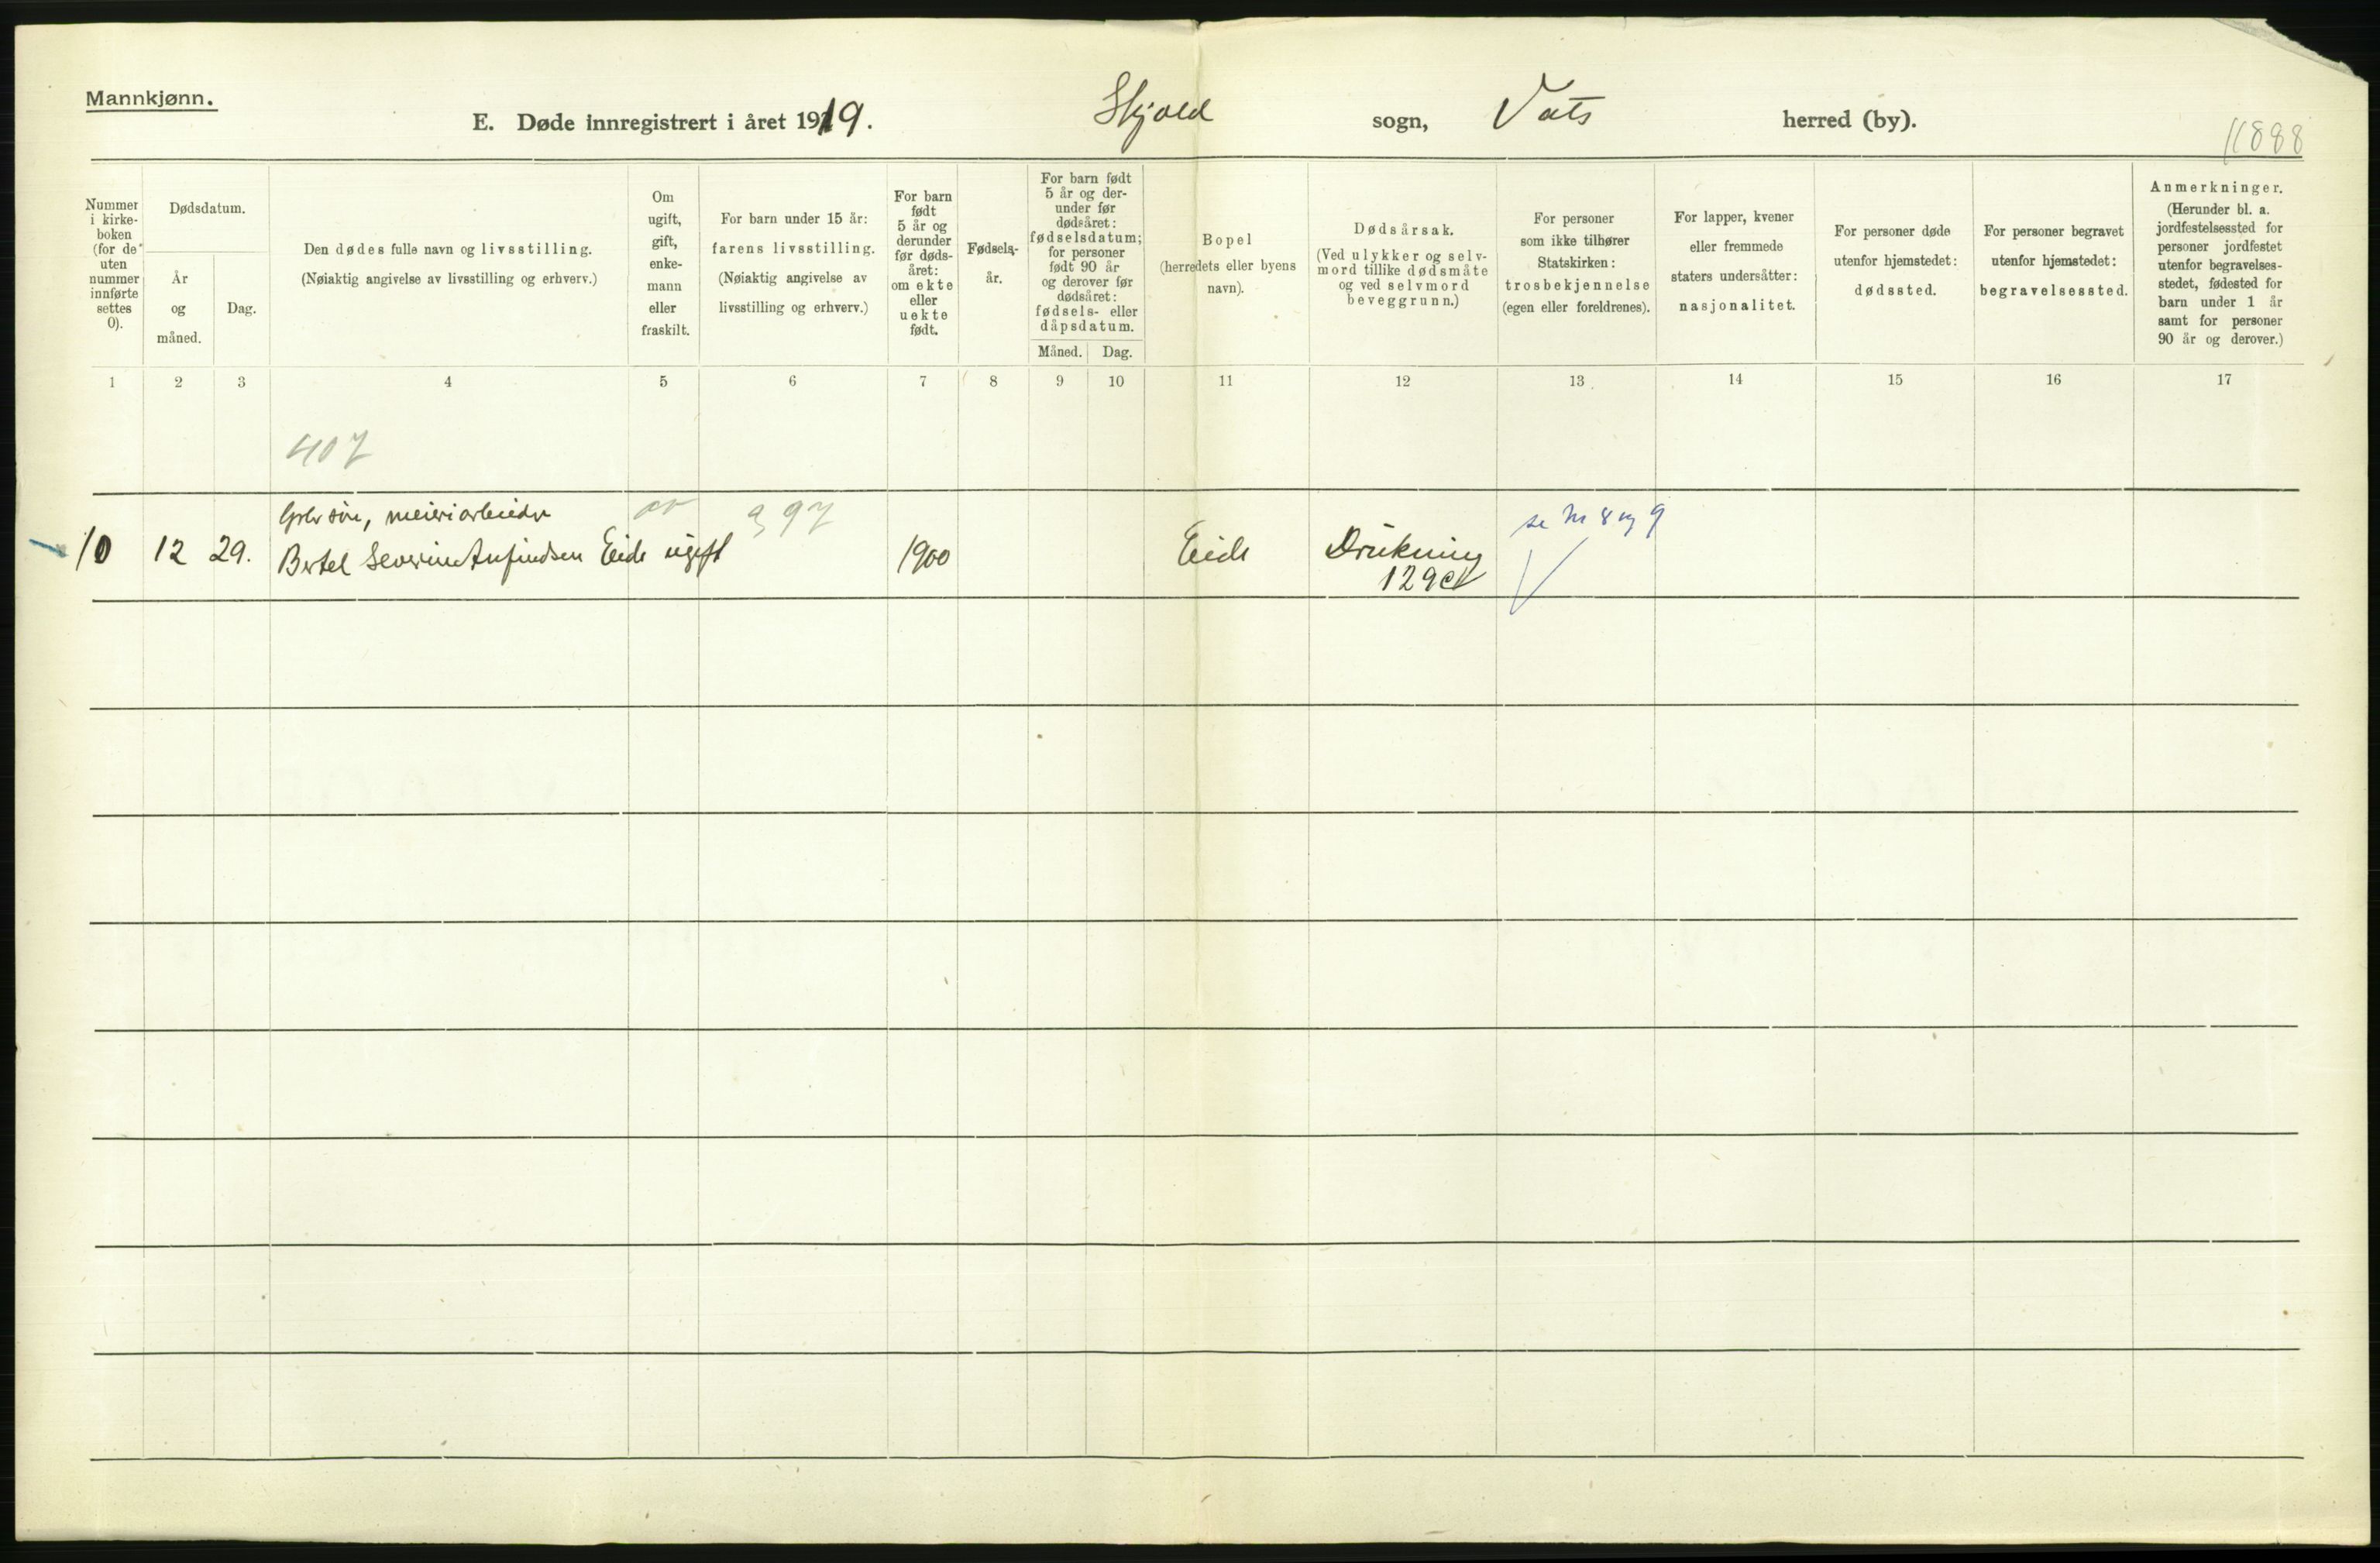 Mannkjønn.
E. Døde innregistrert i året 1919. Skjold sogn, Vats herred (by).
11888
Nummer i kirke-boken (for de uten nummer innførte settes 0).
Dødsdatum.
År og måned.
Dag.
Den dødes fulle navn og livsstilling.
(Nøiaktig angivelse av livsstilling og erhverv.)
Om ugift, gift, enke-mann eller fraskilt.
For barn under 15 år:
farens livsstilling.
(Nøiaktig angivelse av livsstilling og erhverv.)
For barn født 5 år og derunder før døds-året: om ekte eller uekte født.
Fødsels-år.
For barn født 5 år og der-under før dødsåret: fødselsdatum; for personer født 90 år og derover før dødsåret: fødsels- eller dåpsdatum.
Måned.
Dag.
Bopel
(herredets eller byens navn).
Dødsårsak.
(Ved ulykker og selv-mord tillike dødsmåte og ved selvmord beveggrunn.)
For personer som ikke tilhører Statskirken: trosbekjennelse (egen eller foreldrenes).
For lapper, kvener eller fremmede staters undersåtter: nasjonalitet.
For personer døde utenfor hjemstedet: dødssted.
For personer begravet utenfor hjemstedet: begravelsessted.
Anmerkninger.
(Herunder bl. a. jordfestelsessted for personer jordfestet utenfor begravelses-stedet, fødested for barn under 1 år samt for personer 90 år og derover.)
1 2 3 4 5 6 7 8 9 10 11 12 13 14 15 16 17
407
søn, meieriarbeider
397
se nr 8 og 9
10 12 29. Bertel Severin Anfindsen Eide ugift 1900 Eide Drukning
129